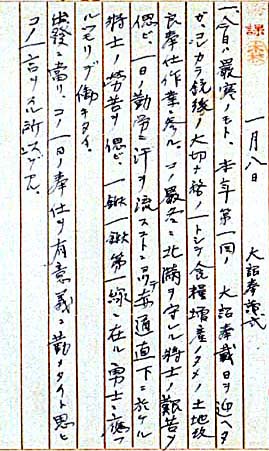 一月八日
大詔奉讀式
一、今日ハ最寒ノモト、本年第一回ノ大詔奉戴日ヲ迎ヘタ
ガ、コレカラ銃後ノ大切ナ務ノ一トシテ食糧増産ノタメノ土地改
良奉仕作業ニ参ル。コノ嚴冬ニ北満ヲ守レル將士ノ艱苦ヲ
偲ビ、一日勤労ニ汗ヲ流ストキ赤道直下ニ於ケル
將士ノ勞苦ヲ偲ビ、一鍬一鍬第一線ニ在ル勇士ニ應フ
ルツモリデ働キタイ。
出發ニ當リ、コノ一日ノ奉仕ヲ有意義ニ勤メタイト思ヒ
コノ一言ヲ